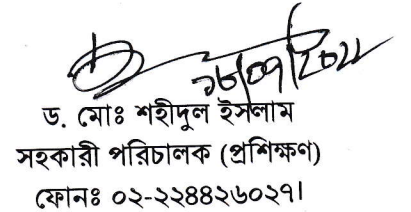 ড. মোঃ শহীদুল ইসলাম
সহকারী পরিচালক (প্রশিক্ষণ)
ফোনঃ ০২-২২৪৪২৬০২৭।